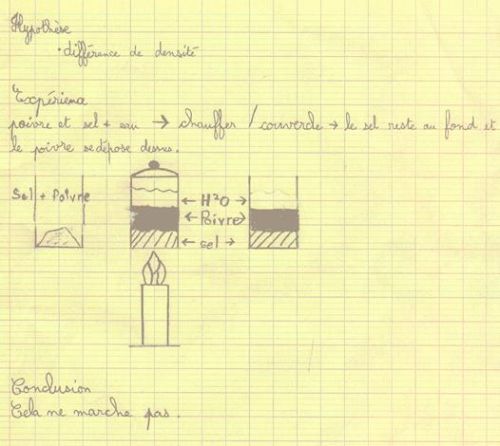 Hypothèse
• différence de densité
Expérience
poivre et sel + eau → chauffer / couvercle → le sel reste au fond et
le poivre se dépose dessus.
Sel + Poivre
← H²O →
← Poivre →
← sel →
Conclusion
Cela ne marche pas.